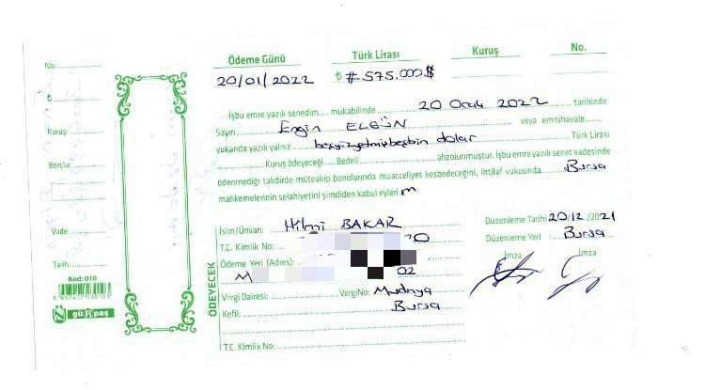 No:
Ödeme Günü Türk Lirası Kuruş No.
20/01/2022 ₺ # 575.000$
₺
İşbu emre yazılı senedim mukabilinde 20 Ocak 2022 tarihinde
Kuruş:
Sayın Engin ELGÜN veya emrühavale
yukarıda yazılı yalnız beşyüzyetmişbeşbin dolar Türk Lirası
Borçlu:
Kuruş ödeyeceği Bedeli ahzolunmuştur. İşbu emre yazılı senet vadesinde
ödenmediği takdirde müteakip bonolarında muacceliyet kesbedeceğini, ihtilaf vukuunda Bursa
mahkemelerinin selahiyetini şimdiden kabul eyleri m
Vade:
Tarih:
Kod: 010
gü R paş
ÖDEYECEK
İsim/Ünvan: Hilmi BAKAR
T.C. Kimlik No: 20
Ödeme Yeri (Adres):
M 02
Vergi Dairesi: VergiNo: Mudanya
Kefil: Bursa
T.C. Kimlik No:
Düzenleme Tarihi 20.12./2021
Düzenleme Yeri Bursa
İmza İmza